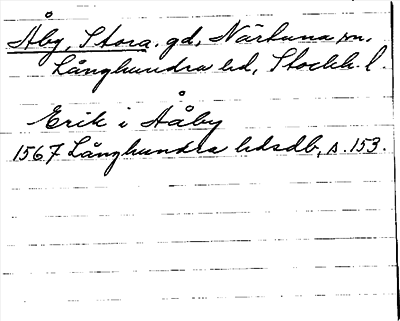 Åby, Stora. gd, Närtuna sn,
Långhundra hd, Stockh. l.
Erik i Aåby
1567 Långhundra hdsdb, s. 153.